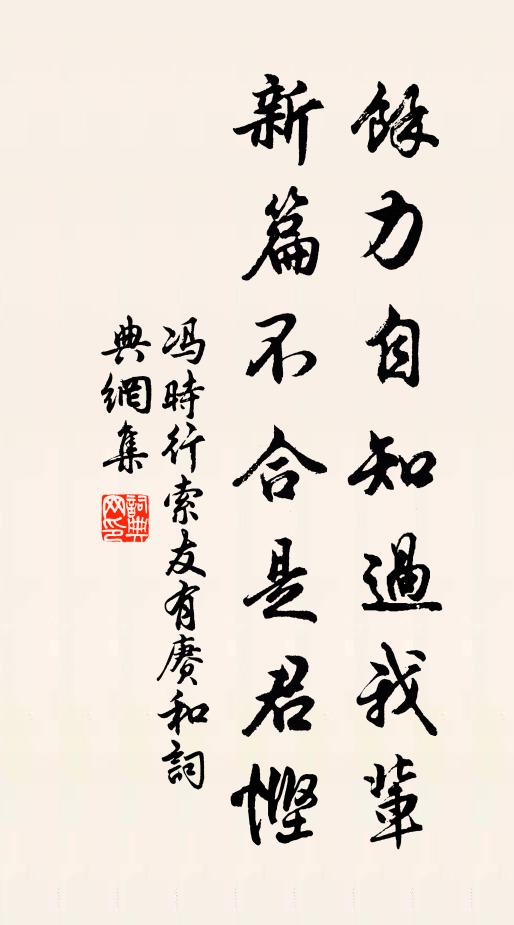 餘力自知過我輩
新篇不合是君慳
冯時行索友有賡和詞
典網集
詞典
网印